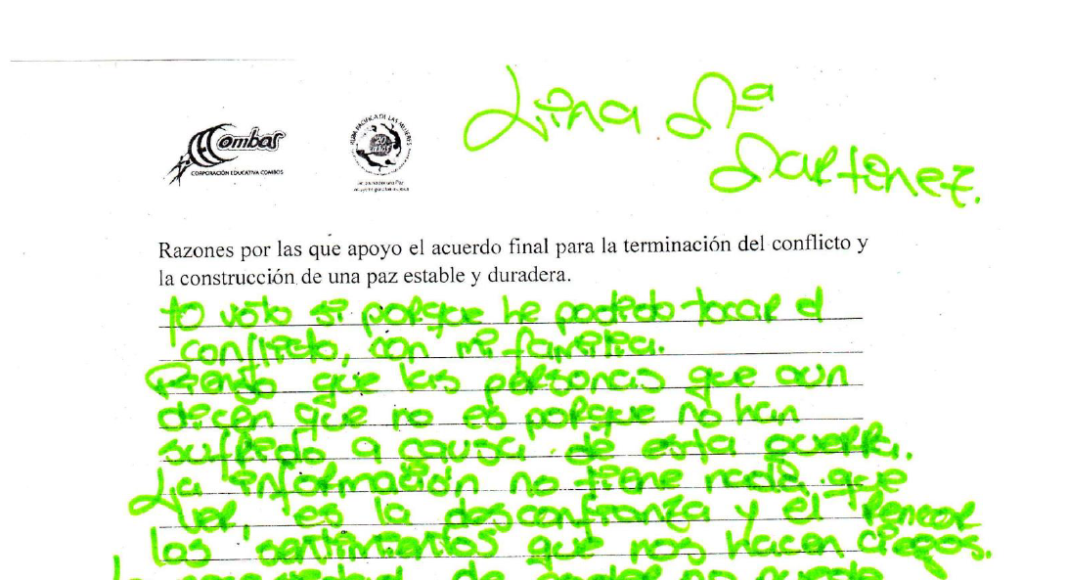 Lina Mª
Martinez.
Combos
CORPORACIÓN EDUCATIVA COMBOS
RUTA PACÍFICA DE LAS MUJERES
20 años
Razones por las que apoyo el acuerdo final para la terminación del conflicto y
la construcción de una paz estable y duradera.
Yo voto si porque he podido tocar el
conflicto, con mi familia.
Piendo que las personas que aun
dicen que no es porque no han
sufrido a causa de esta guerra.
La información no tiene nada que
ver, es la desconfianza y el rencor
los sentimientos que nos hacen ciegos.